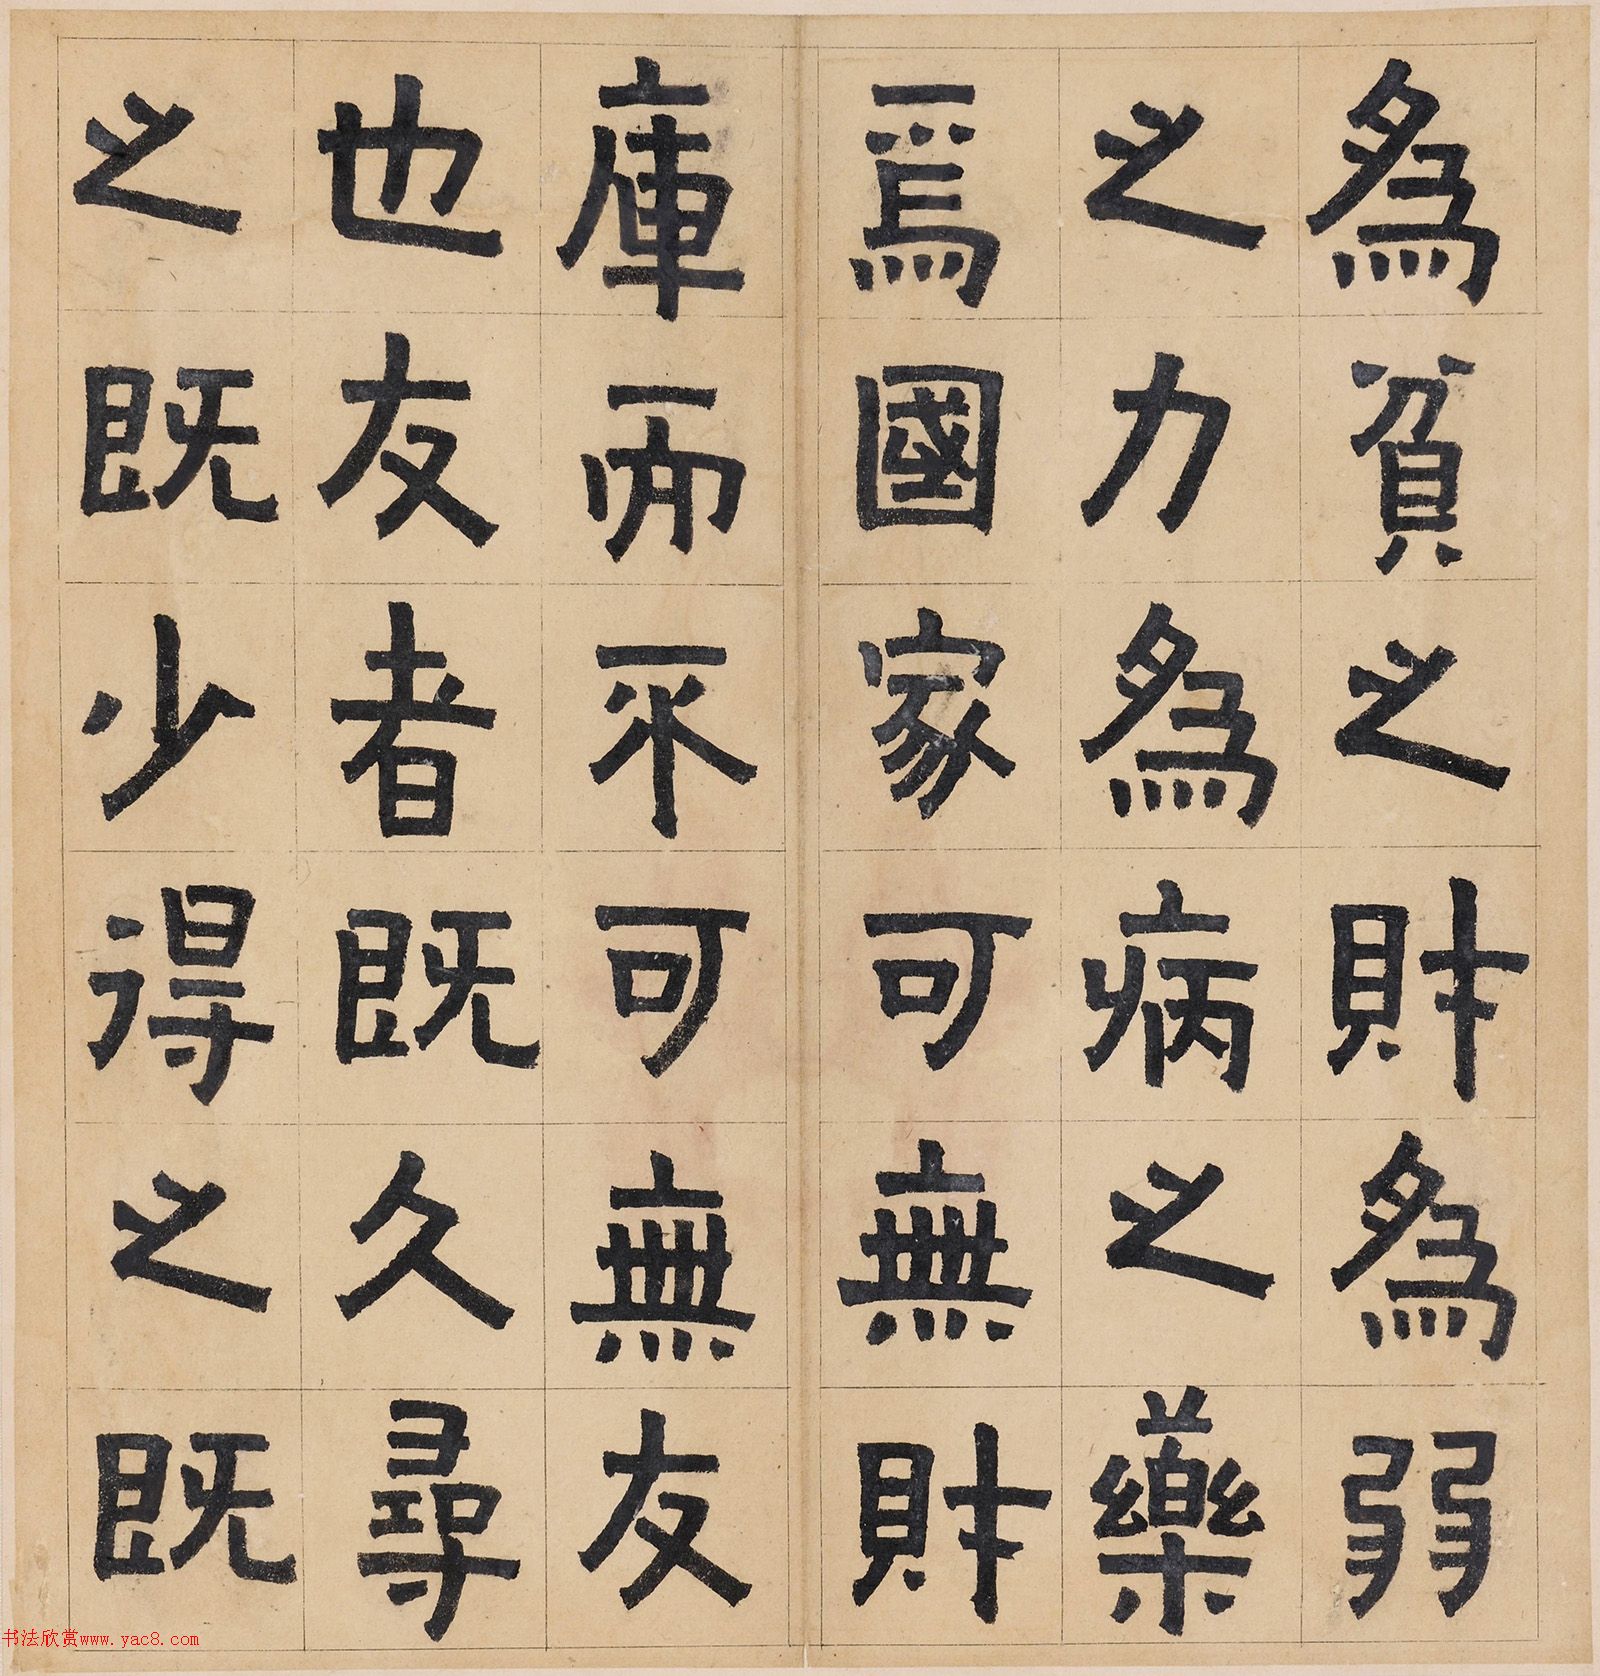 為貧之財為弱
之力為病之藥
焉國家可無財
庫而不可無友
也友者既久尋
之既少得之既
书法欣赏www.yac8.com